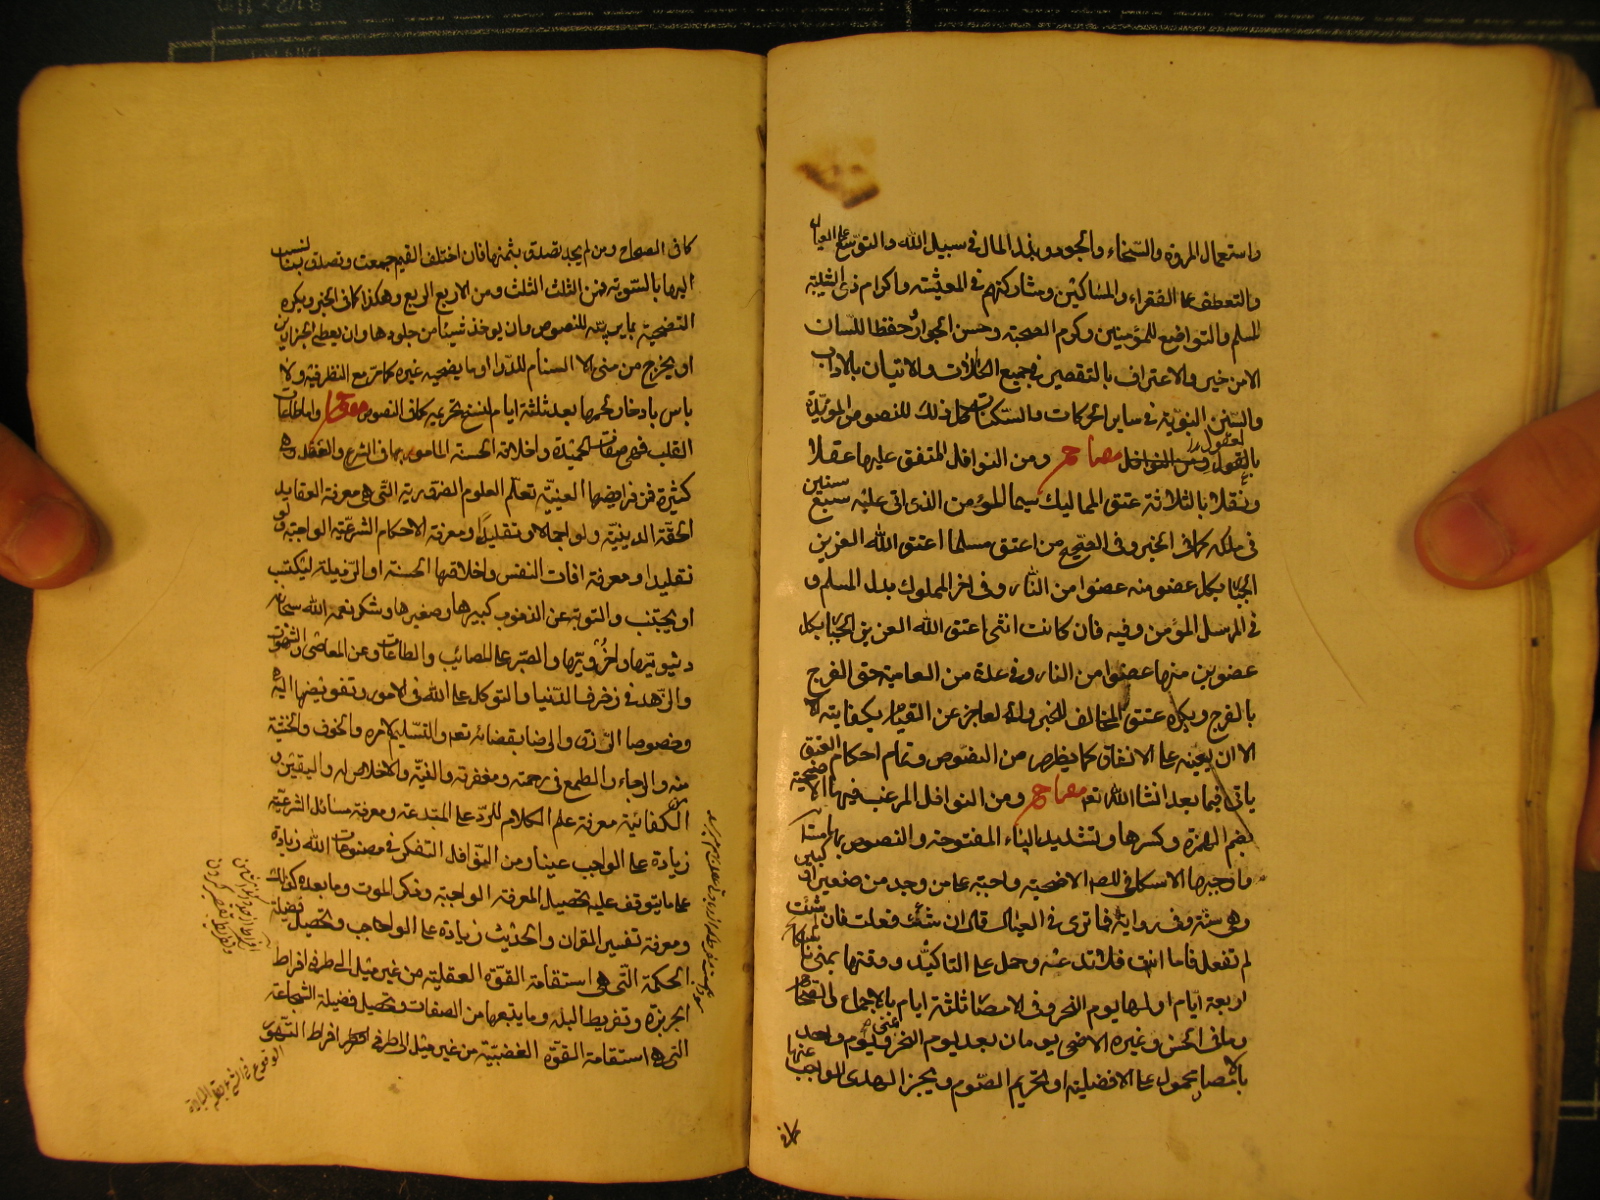 واستعمال المروة والسخاء والجود وبذل المال في سبيل الله والتوسع على العيال
والتعطف على الفقراء والمساكين ومشاركتهم في المعيشة واكرام ذي الشيبة
المسلم والتواضع للمؤمنين وكرم الصحبة وحسن الجوار وحفظ اللسان
الا من خير والاعتراف بالتقصير في جميع الحالات والاتيان بالاداب
والسنن النبوية في ساير الحركات والسكنات كل ذلك للنصوص المؤيدة
بالعقول مصباح ومن النوافل المتفق عليها عقلا
ونقلا بالثلاثة عتق المماليك سيما المؤمن الذي اتى عليه سبع سنين
في ملكه كما في الخبر وفي الصحيح من اعتق مسلما اعتق الله العزيز
الجبار بكل عضو منه عضوا من النار وفي اخر المملوك بدل المسلم و
في المرسل المؤمن وفيه فان كانت انثى اعتق الله العزيز الجبار بكل
عضوين منها عضوا من النار وفي عدة من العامية حتى الفرج
بالفرج ويكره عتق المخالف للخبر والعاجز عن القيام بكفايته
الا ان يعينه على الانفاق كما يظهر من النصوص وتمام احكام العتق
ياتي فيما بعد انشا الله تعالى مصباح ومن النوافل المرغب فيها الاضحية
بضم الهمزة وكسرها وتشديد الياء المفتوحة والنصوص بها
واوجبها الاسكافي للصحيح الاضحية واجبة على من وجد من صغير او كبير
وهي سنة وفي رواية فما ترى في العيال قال ان شئت فعلت فان شئت
لم تفعل فاما انت فلا تدعه وحمل على التاكيد ووقتها بمنى
اربعة ايام اولها يوم النحر وفي الامصار ثلثة ايام بالاجماع والصحاح
وما في الحسن وغيره الاضحى يومان بعد يوم النحر ويوم واحد
بالامصار محمول على الافضلية او تحريم الصوم ويجزي الهدي الواجب عنها
كما في الصحاح ومن لم يجد تصدق بثمنها فان اختلف القيم جمعت وتصدق بما نسب
اليها بالسوية فمن الثلث الثلث ومن الاربع الربع وهكذا كما في الخبر ويكره
التضحية بما يربيه للنصوص وان يوخذ شيئا من جلودها وان يعطى الجزارين
او يخرج من منى الا السنام للدواء او ما يضحيه غيره كما مر مع النظر فيه ولا
باس بادخار لحمها بعد ثلثة ايام لنسخ تحريمه كما في النصوص واما طاعات
القلب فهي صفاته الحميدة واخلاقه الحسنة المامور بها في الشرع والعقل وهي
كثيرة فمن فرايضها العينية تعلم العلوم الضرورية التي هي معرفة العقايد
الحقة الدينية ولو اجمالا وتقليدا ومعرفة الاحكام الشرعية الواجبة ولو
تقليدا ومعرفة افات النفس واخلاقها الحسنة او الرذيلة ليكتسب
او يجتنب والتوبة عن الذنوب كبيرها وصغيرها وشكر نعمه الله سبحانه
دنيويتها واخرويتها والصبر على المصائب والطاعات وعن المعاصي والشهوات
والزهد في زخرف الدنيا والتوكل على الله في الامور وتفويضها اليه
وخصوصا الرزق والرضا بقضائه تعالى والتسليم لامره والخوف والخشية
منه والرجاء والطمع في رحمته ومغفرته والنية والاخلاص له واليقين و
الكفائية معرفة علم الكلام للرد على المبتدعة ومعرفة مسائل الشرعية
زيادة على الواجب عينا ومن النوافل التفكر في مصنوعات الله زيادة
على ما يتوقف عليه تحصيل المعرفة الواجبة وذكر الموت وما بعده كذلك
ومعرفة تفسير القران والحديث زيادة على الواجب وتحصيل فضيلة
الحكمة التي هي استقامة القوة العقلية من غير ميل الى طرفي افراط
الجربزة وتفريط البله وما يتبعها من الصفات وتحصيل فضيلة الشجاعة
التي هي استقامة القوة الغضبية من غير ميل الى طرفي افراط التهور